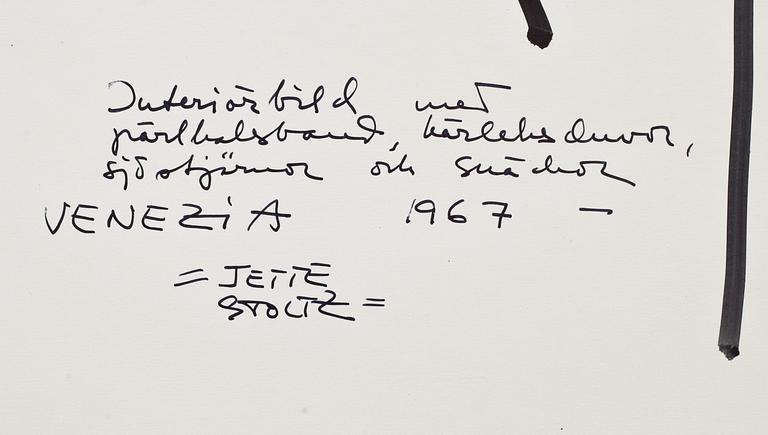 Interiörbild med
pärlhalsband, kärleksduvor,
sjöstjärnor och snäckor
VENEZiA 1967 –
= JETTE
STOLTZ =